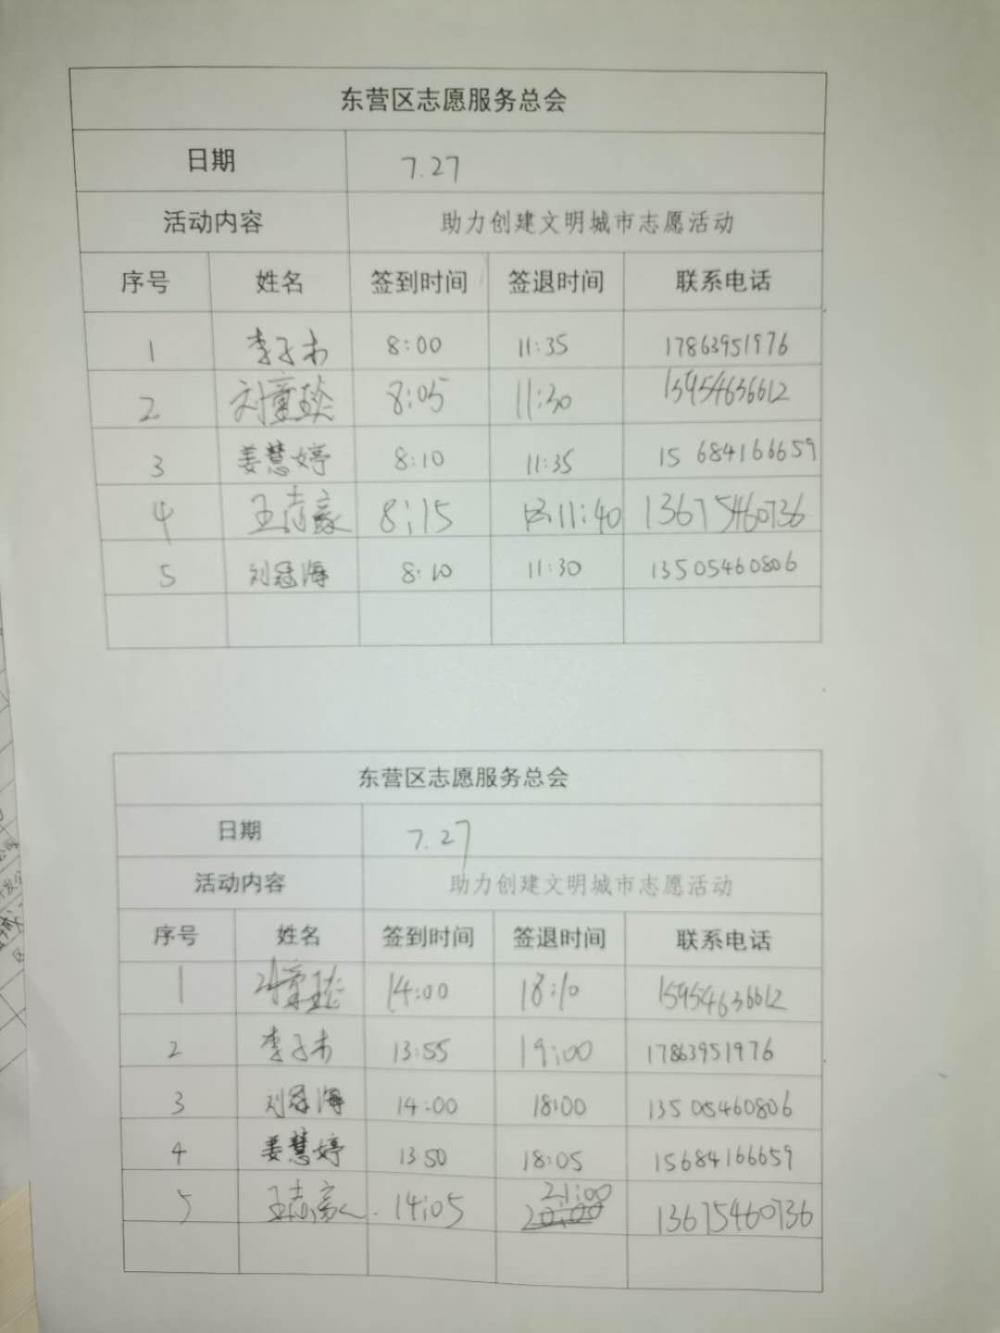 东营区志愿服务总会
日期 7.27
活动内容 助力创建文明城市志愿活动
序号 姓名 签到时间 签退时间 联系电话
1 李子木 8:00 11:35 17863951976
2 刘童 8:05 11:30 15954636612
3 姜慧婷 8:10 11:35 15684166659
4 王志豪 8:15 11:40 13675460736
5 刘冠海 8:10 11:30 13505460806
东营区志愿服务总会
日期 7.27
活动内容 助力创建文明城市志愿活动
序号 姓名 签到时间 签退时间 联系电话
1 刘童 14:00 18:10 15954636612
2 李子木 13:55 19:00 17863951976
3 刘冠海 14:00 18:00 13505460806
4 姜慧婷 13 50 18:05 15684166659
5 王志豪 14:05 21:00 13675460736